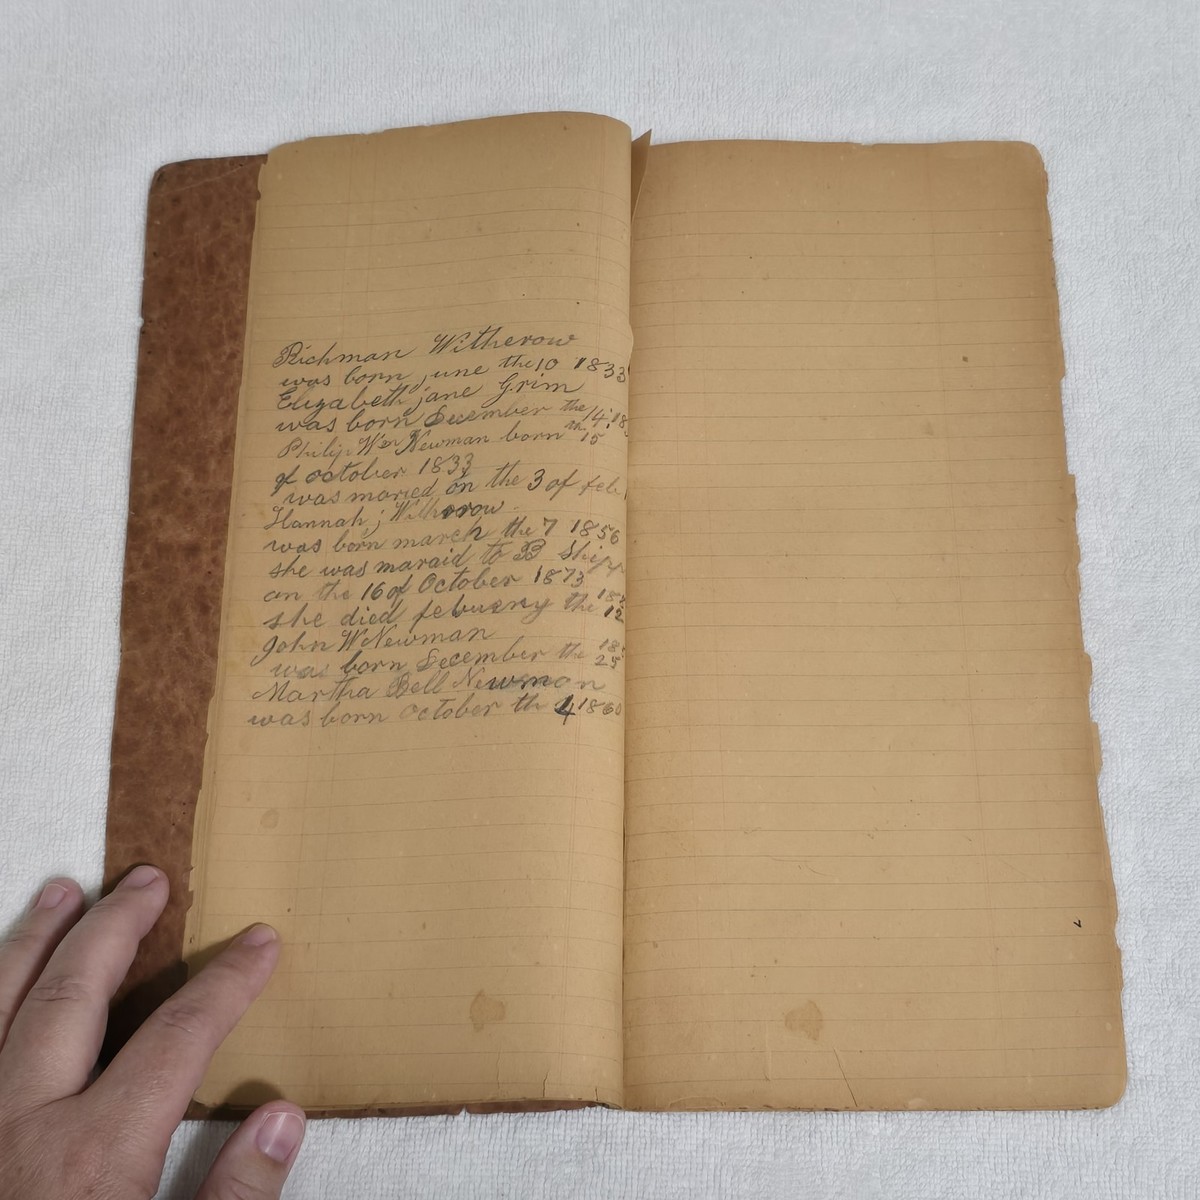 Richman Witherow
was born june the 10 1833
Elizabeth jane Grim
was born December the 14: 18
Philip Wm Newman born th 15
of october 1833
was maried on the 3 of feb
Hannah j Witherow
was born march the 7 1856
she was maraid to B Shipp
on the 16 of October 1873
she died febuery the 12 18
John W Newman
was born December the 25 18
Martha Bell Newman
was born october th 4 1860